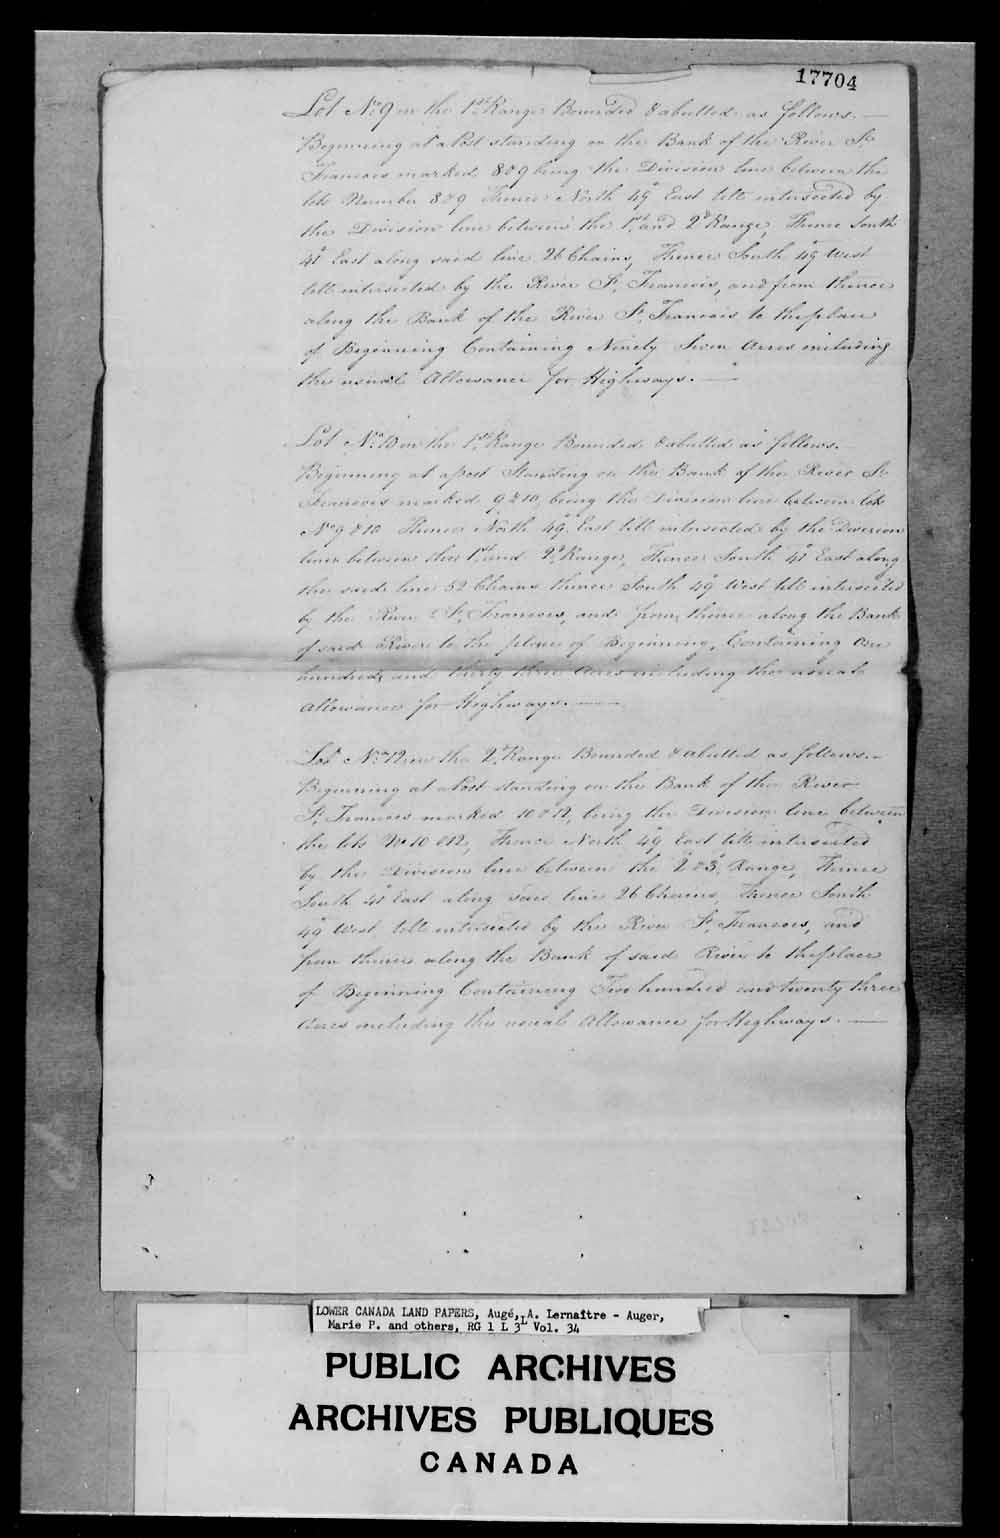 17704
Lot No. 9 on the 1st Range Bounded & abutted as follows. —
Beginning at a Post standing on the Bank of the River St.
Francois marked 8 & 9 being the Division line between the
lots Number 8 & 9 Thence North 49° East till intersected by
the Division line between the 1st and 2d Range, Thence South
41° East along said line 26 Chains, Thence South 49° West
till intersected by the River St. Francois, and from thence
along the Bank of the River St. Francois to the place
of Beginning Containing Ninety Seven Acres including
the usual Allowance for Highways. —
Lot No. 10 on the 1st Range Bounded & abutted as follows. —
Beginning at a post Standing on the Bank of the River St.
Francois marked 9 & 10, being the Division line between lots
No 9 & 10 Thence North 49° East till intersected by the Division
line between the 1st and 2d Range, Thence South 41° East along
the said line 52 Chains thence South 49° West till intersected
by the River St. Francois, and from thence along the Bank
of said River to the place of Beginning, Containing One
hundred and thirty three Acres including the usual
Allowance for Highways. —
Lot No. 12 on the 2d Range Bounded & abutted as follows. —
Beginning at a Post standing on the Bank of the River
St. Francois marked 10 & 12, being the Division line between
the lots No 10 & 12, Thence North 49° East till intersected
by the Division line between the 2 & 3d Range, Thence
South 41° East along said line 26 Chains, Thence South
49° West till intersected by the River St. Francois, and
from thence along the Bank of said River to the place
of Beginning Containing Two hundred and twenty three
Acres including the usual Allowance for Highways. —
LOWER CANADA LAND PAPERS, Augé, A. Lernaître - Auger,
Marie P. and others, RG 1 L 3L Vol. 34
PUBLIC ARCHIVES
ARCHIVES PUBLIQUES
CANADA